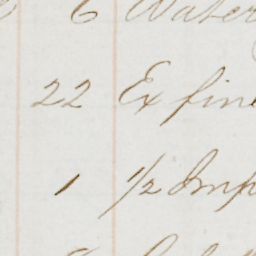 6 Water
22 Ex fine
1 1/2 Imp